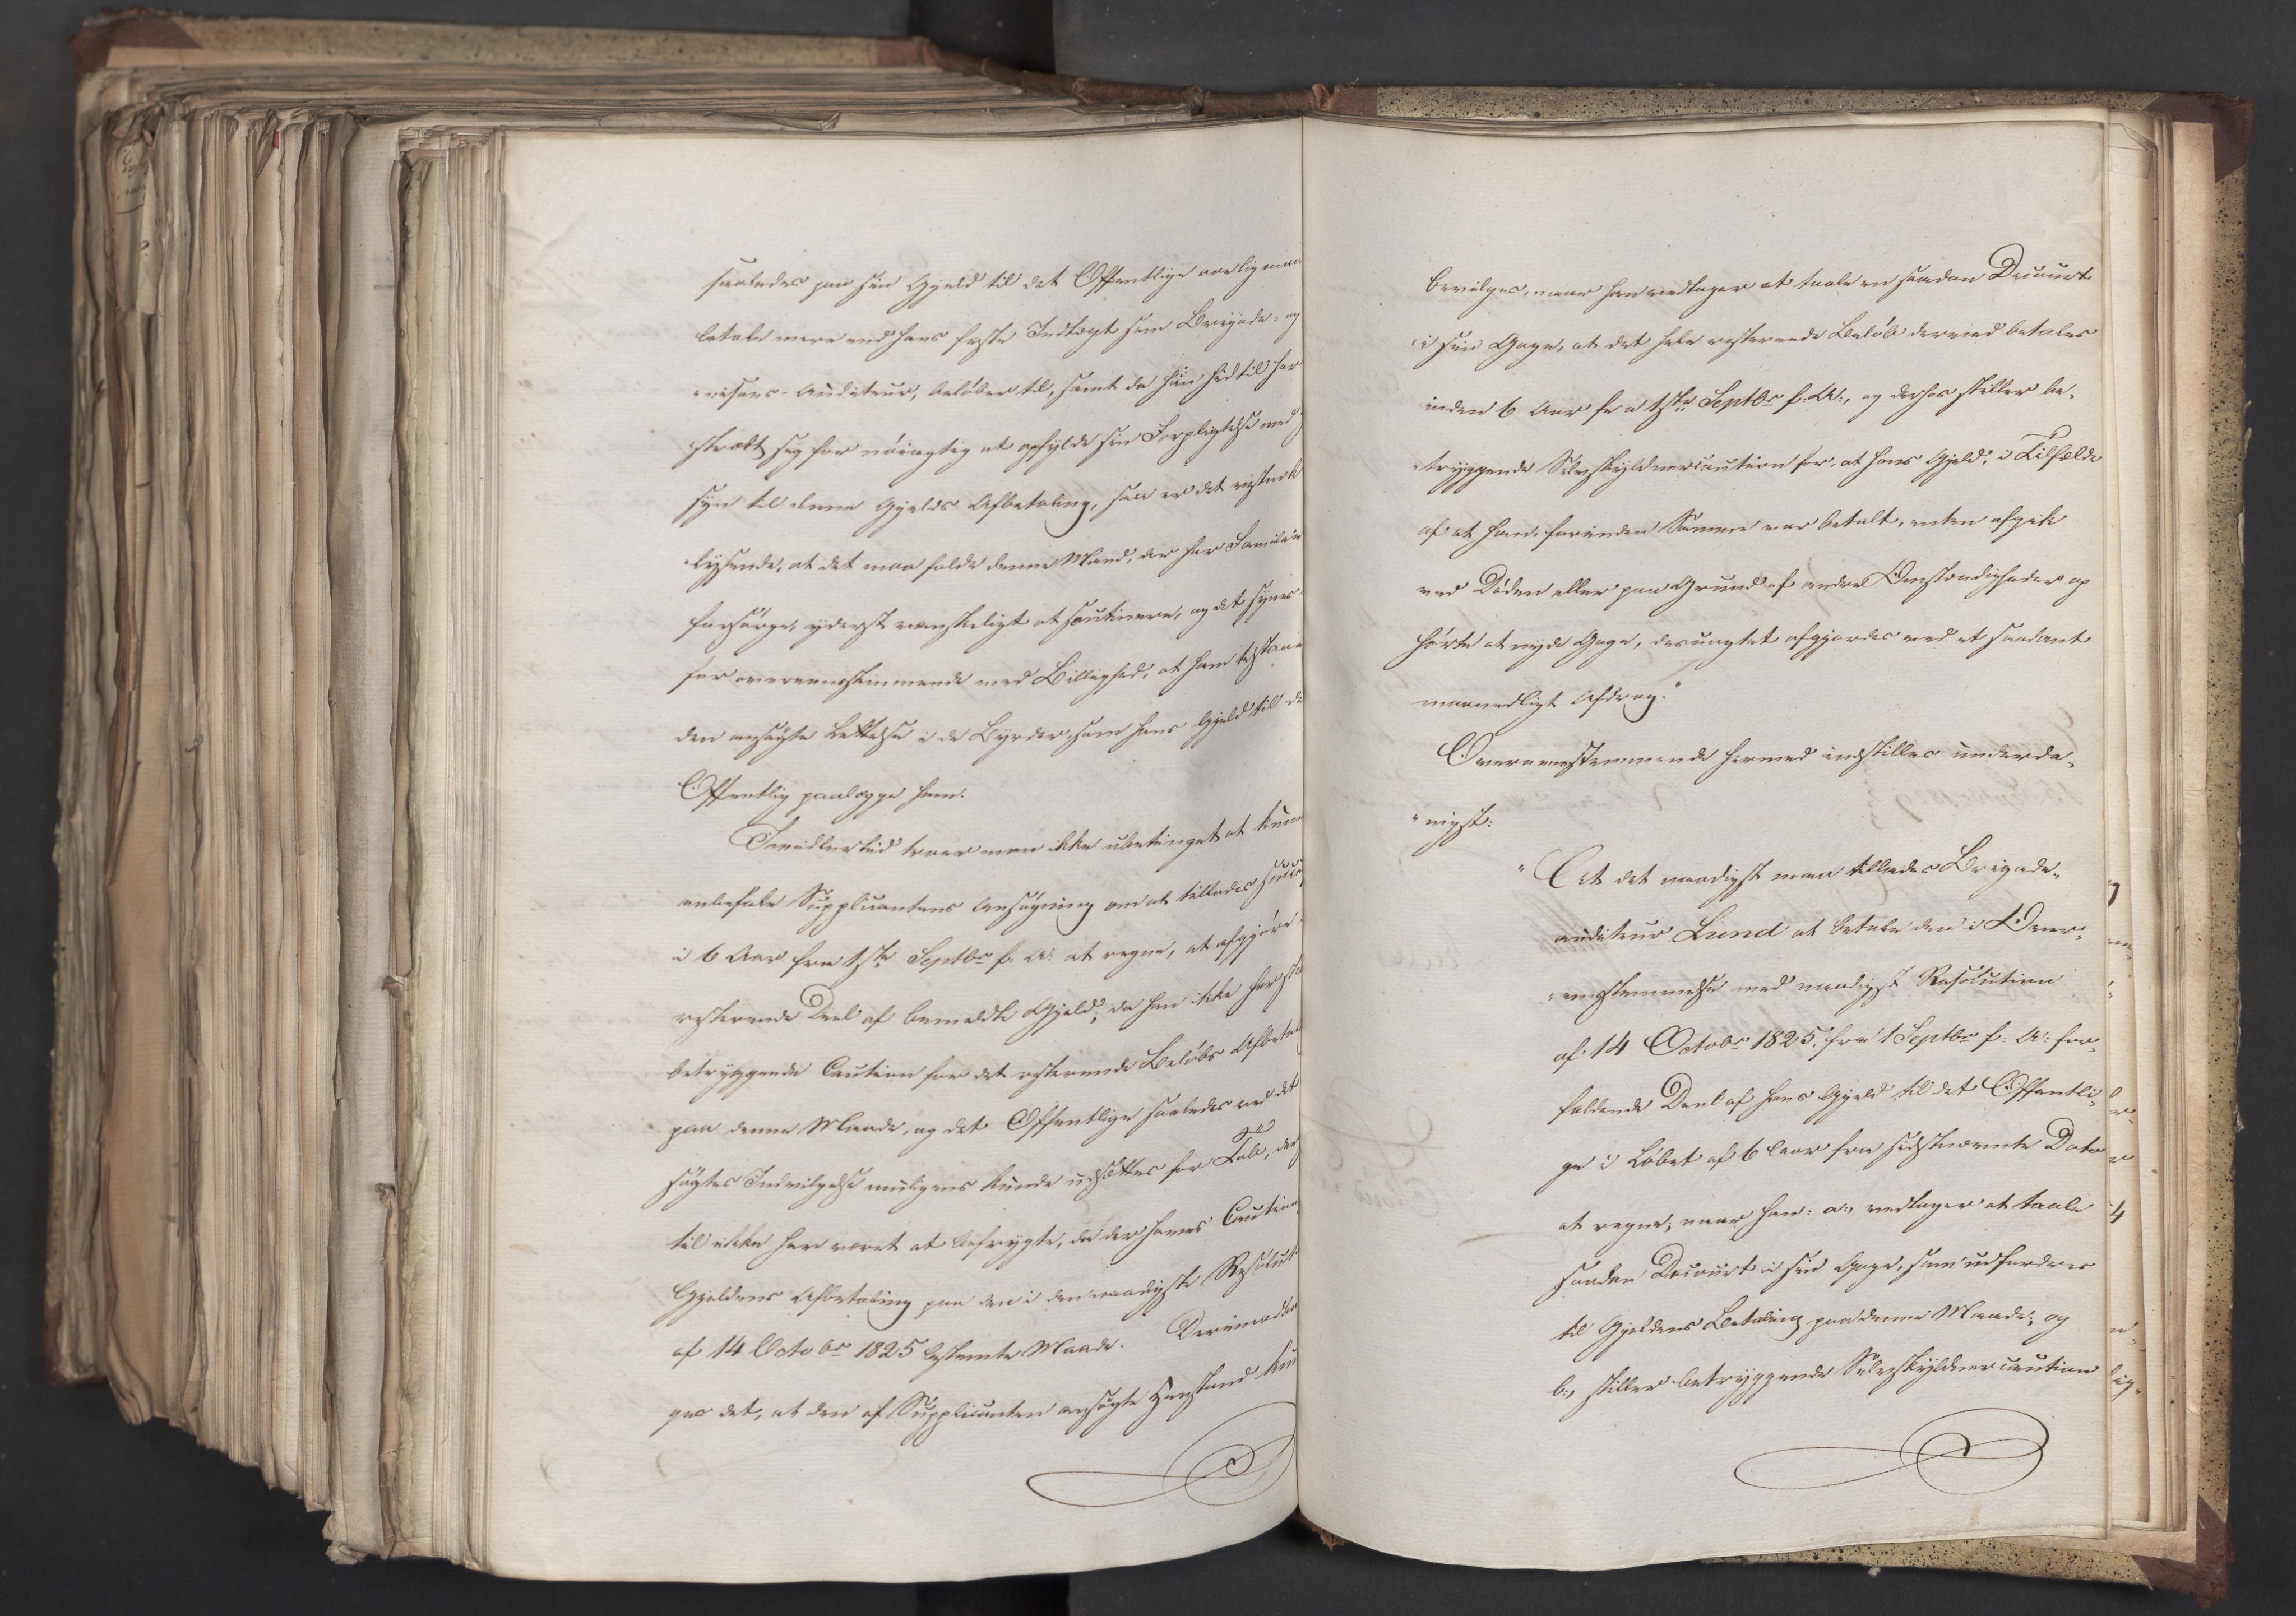 saaledes paa sin Gjeld til det Offentlige aarlig maa
betale mere end hans faste Indtægt som Brigade- og
-auditeur, beløber til, samt da han hidtil har
stræbt sig for nøiagtig at opfylde sin Forpligtelse med
syn til denne Gjelds Afbetaling, saa er det
lysende, at det maa falde denne Mand, der har Familie
forsørge, yderst vanskeligt at continuere, og det synes
for overeensstemmende med Billighed, at ham tilstaaes
den ansøgte Lettelse i de Byrder, som hans Gjeld til de
Offentlig paalægge ham.
Imidlertid troer man ikke ubetinget at kunne
anbefale Supplicantens Ansøgning om at tillades
i 6 Aar fra 1ste Septbr f. A: at regne, at afgjøre
resterende Deel af bemeldte Gjeld; da han ikke har stil
betryggende Caution for det resterende Beløbs Afbetal
paa denne Maade, og det Offentlige saaledes ved det
søgtes Indvilgelse muligens kunde udsættes for Tab, der
til ikke har været at befrygte, da der haves Caution
Gjeldens Afbetaling paa den i den naadigste Resolut
af 14 Octobr 1825 bestemte Maade. Derimod
det, at den af Supplicanten ansøgte Henstand kun
bevilges, naar han vedtager at taale en saadan Decourt
i sin Gage, at det hele resterende Beløb dermed betales
inden 6 Aar fra 1ste Septbr f. A:, og derhos stiller be-
tryggende Selvskyldnercaution for, at hans Gjeld, i Tilfælde
af at han, forinden Samme var betalt, enten afgik
ved Døden eller paa Grund af andre Omstændigheder op
hørte at nyde Gage, desuagtet afgjøres med et saadant
maanedligt Afdrag."
Overeensstemmende hermed indstilles underda-
nigst:
"At det naadigst maa tillades Brigade-
auditeur Lund at betale den i Over-
eensstemmelse med naadigst Resolution
af 14 Octobr 1825. fra 1 Septbr f: A: for-
faldende Deel af hans Gjeld til det Offentli-
ge i Løbet af 6 Aar fra sidstnævnte Dato
at regne; naar han: a:, vedtager at taale
saadan Decourt i sin Gage, som udfordres
til Gjeldens Betaling paa denne Maade; og
b:, stiller betryggende Selvskyldnercaution